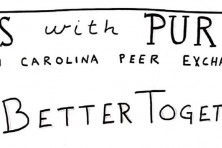 S with PUR
CAROLINA PEER EXCHA
BETTER TOGET